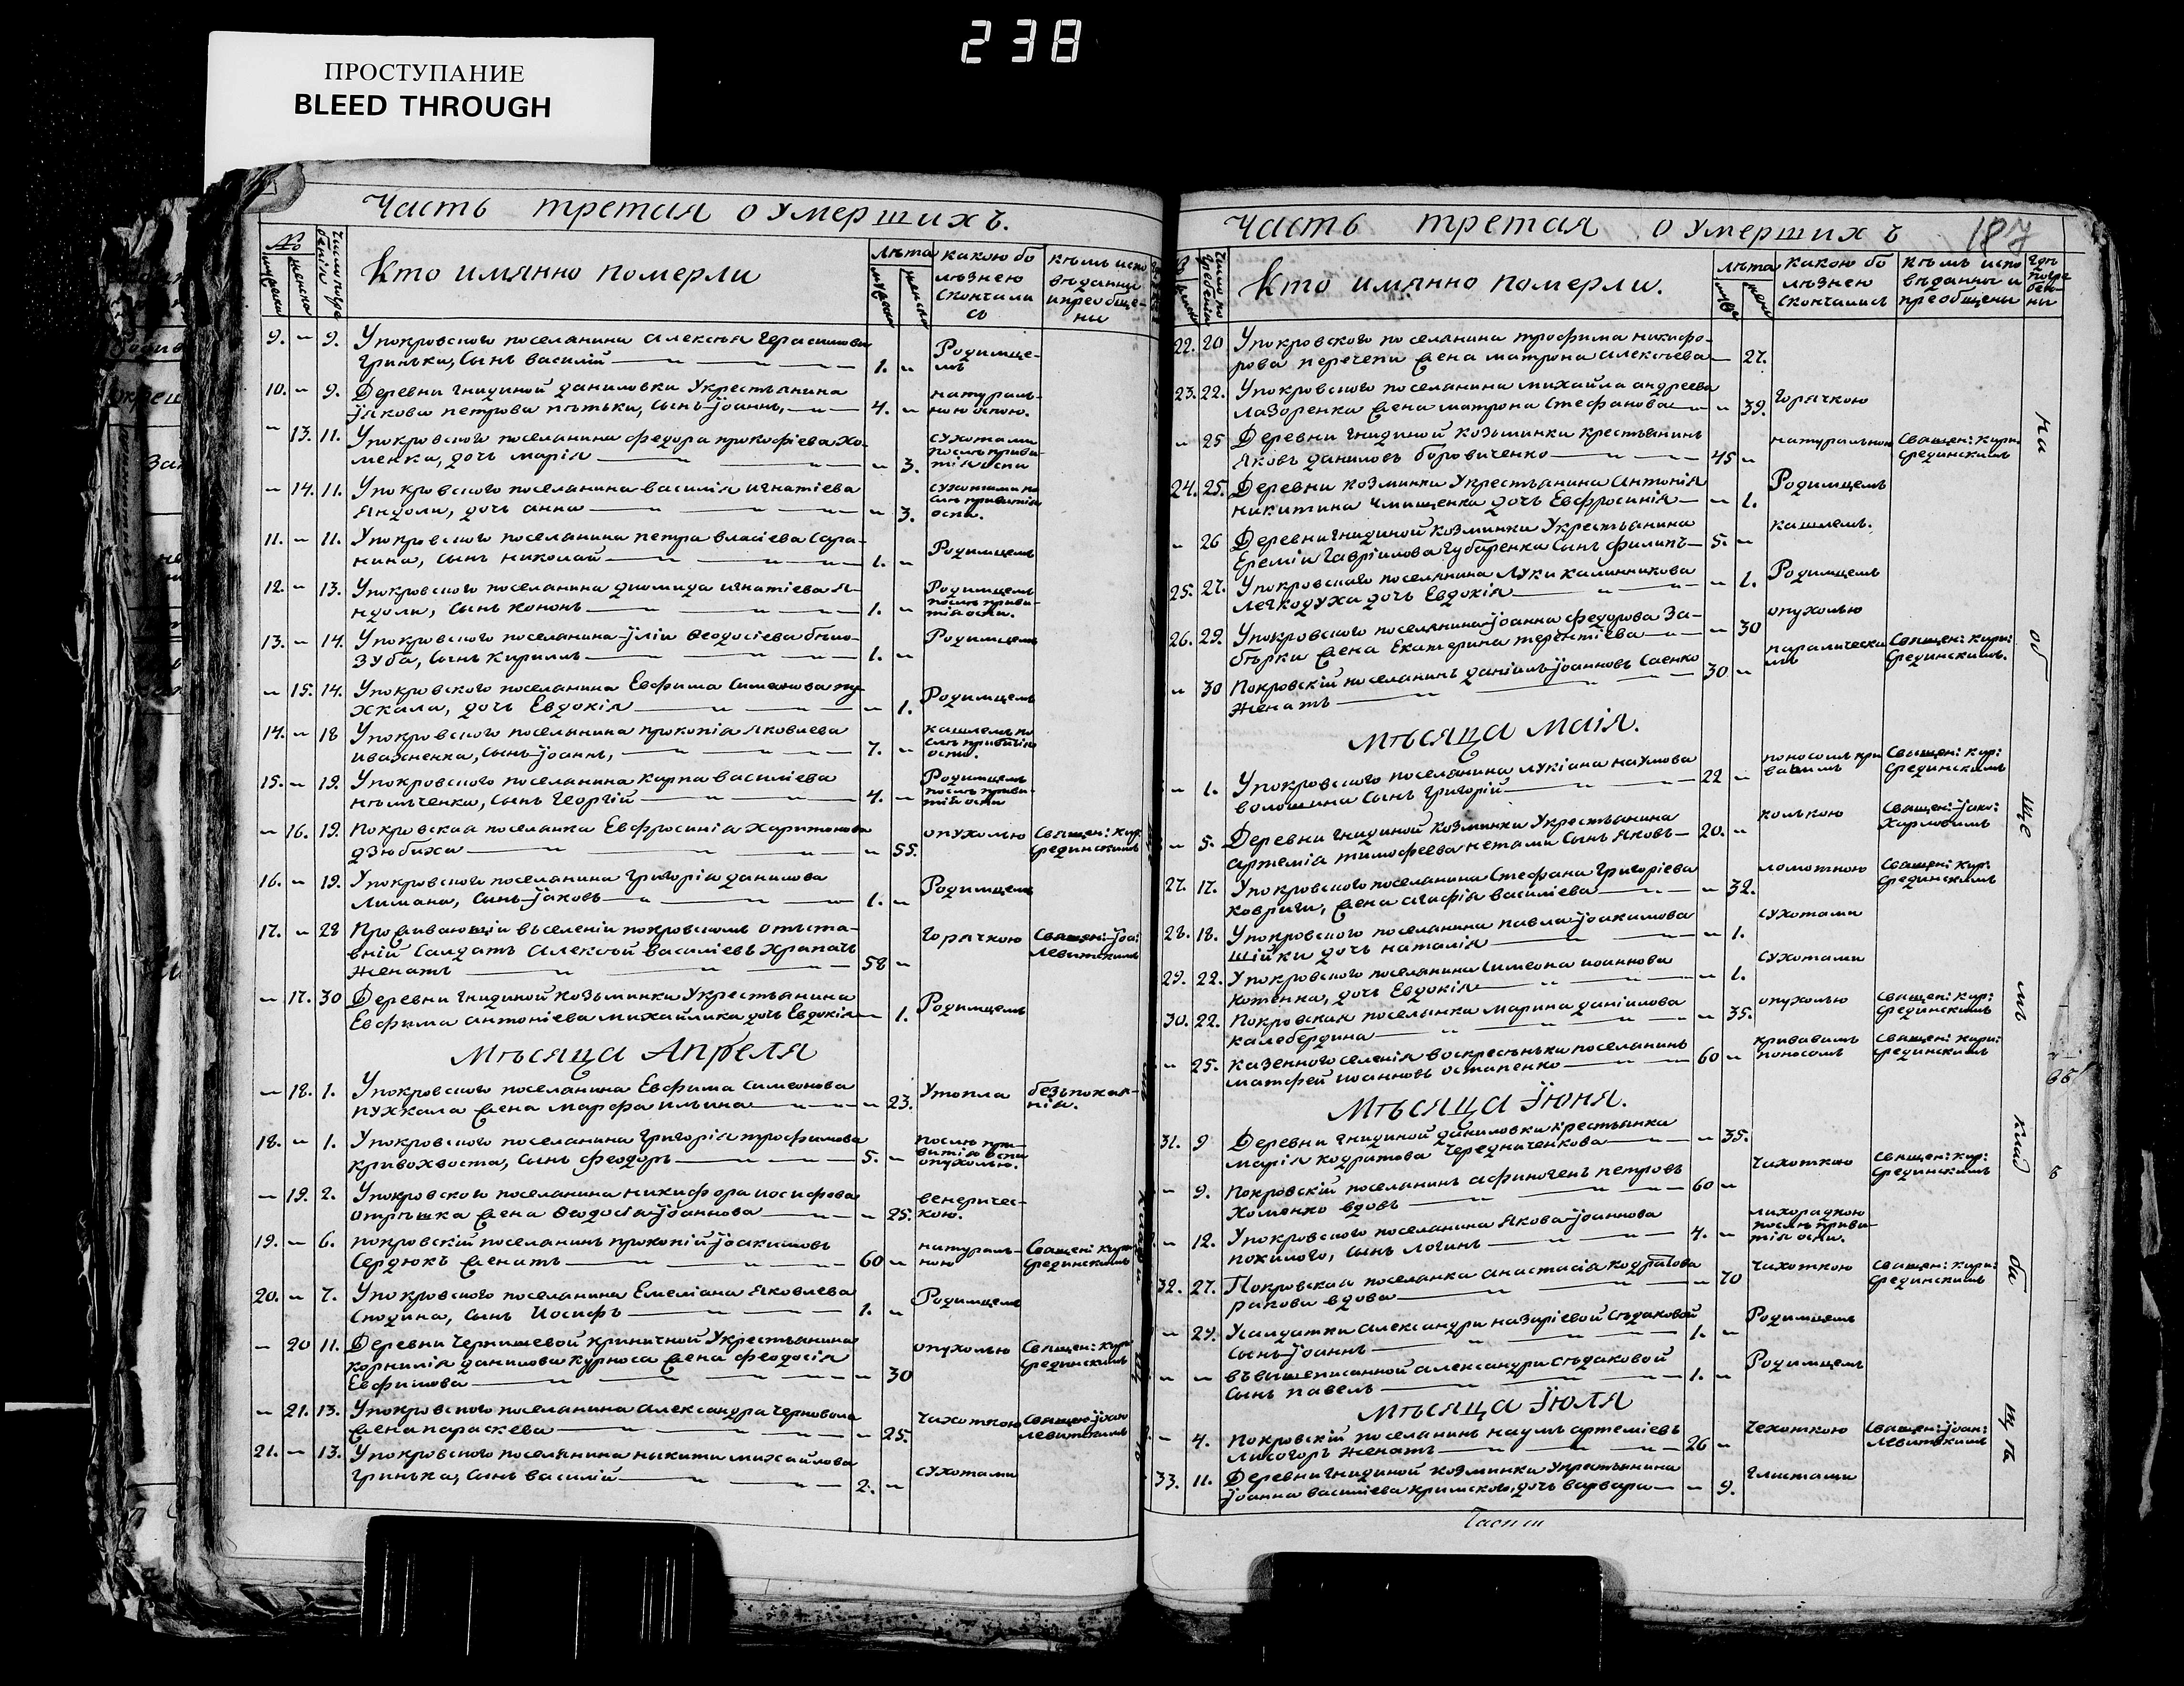 238
ПРОСТУПАНИЕ
BLEED THROUGH
Часть третая о умершихъ.
№
Кто имянно померли
лѣта
какою бо
лѣзнею
скончали
сь
кѣмъ испо
вѣданы
и преобще-
ны
9. – 9. У покровского поселанина Алексѣя Герасимова
Гриньки, Сынъ Василій 1. –
Родимце-
мъ
10. – 9. Деревни Гнидиной Даниловки У крестьянина
Јякова Петрова пѣтьки, Сынъ Јоаннъ, 4. –
натураль-
ною оспою.
– 13. 11. У покровского поселанина Федора Прокофіева Хо-
менка, дочь Марія – 3.
сухотами
послѣ приви-
тія оспи
– 14. 11. У покровского поселанина Василія Игнатіева
Яндоли, дочь Анна – 3.
сухотами по
слѣ привитія
оспи.
11. – 11. У покровского поселанина Петра Власіева Сора-
кина, Сынъ Николай 1. –
Родимцемъ
12. – 13. У покровского поселанина Диомида Игнатіева Я-
ндоли, Сынъ Кононъ 1. –
Родимцемъ
послѣ приви-
тія оспи.
13. – 14. У покровского поселанина Јліи Ѳеодосіева бѣло-
зуба, Сынъ Кириллъ 1. –
Родимцемъ
– 15. 14. У покровского поселанина Евфима Симеонова пу-
хкала, дочь Евдокія – 1.
Родимцемъ
14. – 18 У покровского поселанина Прокопія Яковлева
Иваxненка, Сынъ Јоаннъ, 7. –
кашлемъ по
слѣ привитія
оспи.
15. – 19. У покровского поселанина Карпа Василіева
нѣмченка, Сынъ Георгій 4. –
Родимцемъ
послѣ приви-
тія оспи
– 16. 19. Покровская поселанка Евфросинія Харитонова
Дзюбиха – 55.
опухолью
Священ: Кир:
Срединскимъ
16. – 19. У покровского поселанина Григорія Данилова
Лимана, Сынъ Јаковъ 1. –
Родимцемъ
17. – 28 Проживающій в селеніи покровскомъ отъста-
вній Салдатъ Алексѣй Василіевъ Храпачь
женатъ 58 –
Горячкою
Священ: Јоа:
Левитскимъ
– 17. 30 Деревни Гнидиной Козьминки У крестьянина
Евфима Антоніева Михайлика дочь Евдокія – 1.
Родимцемъ
Мѣсяца Апреля
– 18. 1. У покровского поселанина Евфима Симеонова
пухкала жена Марфа Ильина – 23.
Утопла
безъ покая-
нія.
18. – 1. У покровского поселанина Григорія Трофимова
Кривохвоста, Сынъ Феодоръ 5. –
послѣ при-
витія оспи
опухолью.
– 19. 2. У покровского поселанина Никифора Иосифова
Отрѣшка жена Ѳеодосія Јоаннова – 25.
венеричес-
кою.
19. – 6. Покровскій поселанинъ Прокопій Јоакимовъ
Сердюкъ женатъ 60 –
натураль-
ною
Священ: Кир:
Срединскимъ
20. – 7. У покровского поселанина Емеліана Яковлева
Сподина, Сынъ Иосифъ 1. –
Родимцемъ
– 20 11. Деревни Чернишевой Криничной У крестьянина
Корнилія Данилова Курноса жена Феодосія
Евфимова – 30
опухолью
Священ: Кир:
Срединскимъ
– 21. 13. У покровского поселанина Александра Черновола
жена Параскева – 25.
Чихоткою
Священ: Јоан
Левитскимъ
21. – 13. У покровского поселянина Никити Михайлова
Гринька, Сынъ Василій 2. –
сухотами
Часть третая о умершихъ
187
Кто имянно померли.
лѣта
какою бо
лѣзнею
скончались
кѣмъ испо
вѣданы и
преобщены
гдѣ
погре
бен-
ны
22. 20 У покровского поселанина Трофима Никифо-
рова Перечепи жена Матрона Алексѣева – 27.
23. 22. У покровского поселанина Михайла Андреева
Лазоренка жена Матрона Стефанова – 39.
Горячкою
– 25 Деревни Гнидиной Козьминки крестьянинъ
Яковъ Даниловъ Боровиченко 45 –
натуральною
Священ: Кири:
Срединскимъ
24. 25. Деревни Козминки У крестьянина Антонія
Никитина Чмищенка дочь Евфросинія – 1.
Родимцемъ
– 26 Деревни Гнидиной Козминки У крестьянина
Ереміи Гавріилова Губаренка Сынъ Филипъ 5. –
кашлемъ.
25. 27. У покровского поселянина Луки Калинникова
Легкодуха дочь Евдокія – 1.
Родимцемъ
26. 29. У покровского поселянина Јоанна Федорова За-
бѣрки жена Екатерина Терентіева – 30
опухолью
– 30 Покровскій поселанинъ Даніилъ Јоанновъ Саенко
женатъ 30 –
параличеcки
мъ
Священ: Кири:
Срединскимъ.
Мѣсяца Маія.
– 1. У покровского поселянина Лукіана Наумова
Волошина Сынъ Григорій 22 –
поносомъ кри
вавимъ
Священ: Кир:
Срединскимъ
– 5. Деревни Гнидиной Козминки У крестьянина
Артеміа Тимофеева Нетами Сынъ Яковъ 20. –
колькою
Священ: Јоан:
Харловимъ
27. 17. У покровского поселанина Стефана Григоріева
Ковриги, жена Агафія Василіева – 32.
ломотною
Священ: Кир:
Срединскимъ
28. 18. У покровского поселанина Павла Јоакимова
Шійки дочь Наталія – 1.
сухотами
29. 22. У покровского поселянина Симеона Иоаннова
Котенка, дочь Евдокія – 1.
сухотами
30. 22. Покровская поселянка Марина Даніилова
Калебердина – 35.
опухолью
Священ: Кир:
Срединскимъ
– 25. Казенного селенія Воскресѣньки поселанинъ
Матфей Иоанновъ Остапенко 60 –
кривавимъ
поносомъ
Священ: Кири:
Срединскимъ
Мѣсяца Јюня.
31. 9 Деревни Гнидиной Даниловки крестьянка
Марія Кодратова Чередниченкова – 35.
– 9. Покровскій поселанинъ Афиногенъ Петровъ
Хоменко вдовъ 60 –
Чихоткою
Священ: Кир:
Срединскимъ
– 12. У покровского поселанина Якова Јоаннова
Похилого, Сынъ Логинъ 4. –
лихорадкою
послѣ приви-
тія оспи.
32. 27. Покровская поселанка Анастасія Кодратова
Ракова вдова – 70
Чихоткою
Священ: Кири:
Срединскимъ
– 29. У салдатки Александри Назаріевой Сѣдаковой
Сынъ Јоаннъ 1. –
Родимцемъ
– – въ вишеписанной Александри Сѣдаковой
Сынъ Павелъ 1. –
Родимцемъ
Мѣсяца Јюля
– 4. Покровскій поселанинъ Наумъ Артеміевъ
Лисогоръ женатъ 26 –
Чехоткою
Священ: Јоан:
Левитскимъ
33. 11. Деревни Гнидиной Козминки У крестьянина
Јоанна Василіева Кримского, дочь Варвара – 9.
глистами
на
об
ще
мъ
клад
би
щѣ